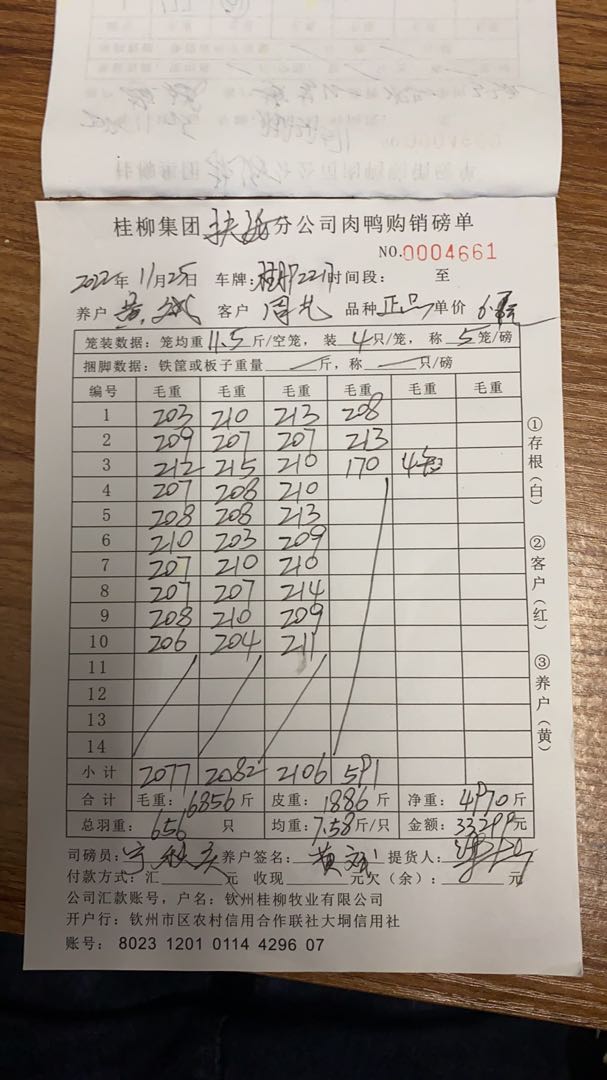 桂柳集团扶绥分公司肉鸭购销磅单
NO.0004661
2022年 11月25日 车牌: 2217 时间段: 至
养户 黄 客户 周 品种 正品 单价 6.7
笼装数据: 笼均重 11.5 斤/空笼, 装 4 只/笼, 称 5 笼/磅
捆脚数据: 铁筐或板子重量 斤, 称 只/磅
编号 毛重 毛重 毛重 毛重 毛重 毛重
1 203 210 213 208
2 209 207 207 213
3 212 215 210 170 4
4 207 208 210
5 208 208 213
6 210 203 209
7 207 210 210
8 207 207 214
9 208 210 209
10 206 204 211
11
12
13
14
小计 2077 2082 2106 591
合计 毛重: 6856 斤 皮重: 1886 斤 净重: 4970 斤
总羽重: 656 只 均重: 7.58 斤/只 金额: 33299 元
司磅员: 养户签名: 黄 提货人:
付款方式: 汇 元 收现 元 欠(余): 元
公司汇款账号, 户名: 钦州桂柳牧业有限公司
开户行: 钦州市区农村信用合作联社大垌信用社
账号: 8023 1201 0114 4296 07
①存根(白)
②客户(红)
③养户(黄)